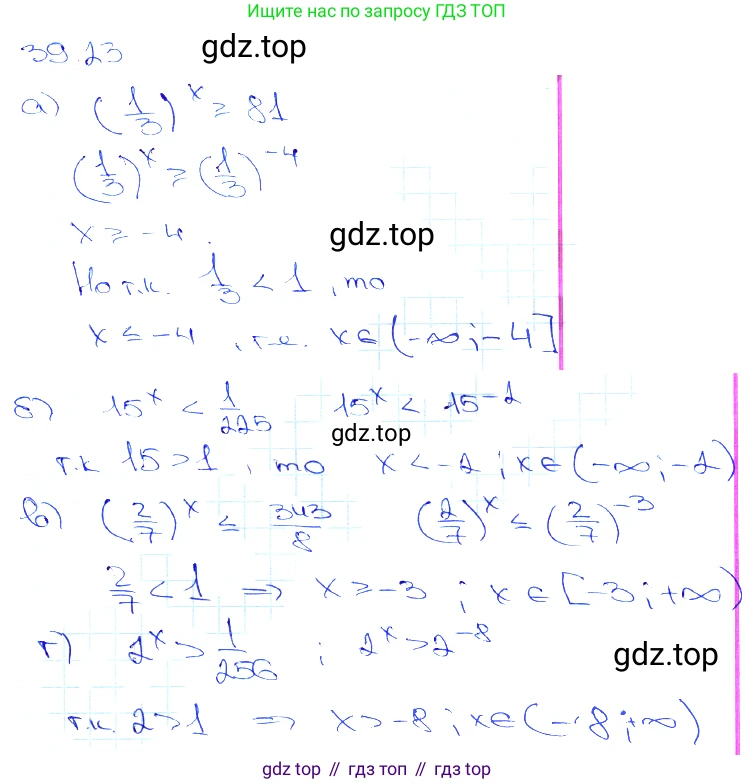 Ищите нас по запросу ГДЗ ТОП
39.23 gdz.top
а) (1/3)^x ≥ 81
(1/3)^x ≥ (1/3)^-4
x ≥ -4. gdz.top
Но т.к. 1/3 < 1, то
x ≤ -4, т.е. x∈(-∞; -4]
б) 15^x < 1/225 15^x < 15^-2
gdz.top
т.к 15 > 1, то x < -2; x∈(-∞; -2)
в) (2/7)^x ≤ 343/8 (2/7)^x ≤ (2/7)^-3
2/7 < 1 ⇒ x ≥ -3; x∈[-3; +∞)
г) 2^x > 1/256; 2^x > 2^-8
gdz.top
т.к. 2 > 1 ⇒ x > -8; x∈(-8; +∞)
gdz top // гдз топ // gdz.top